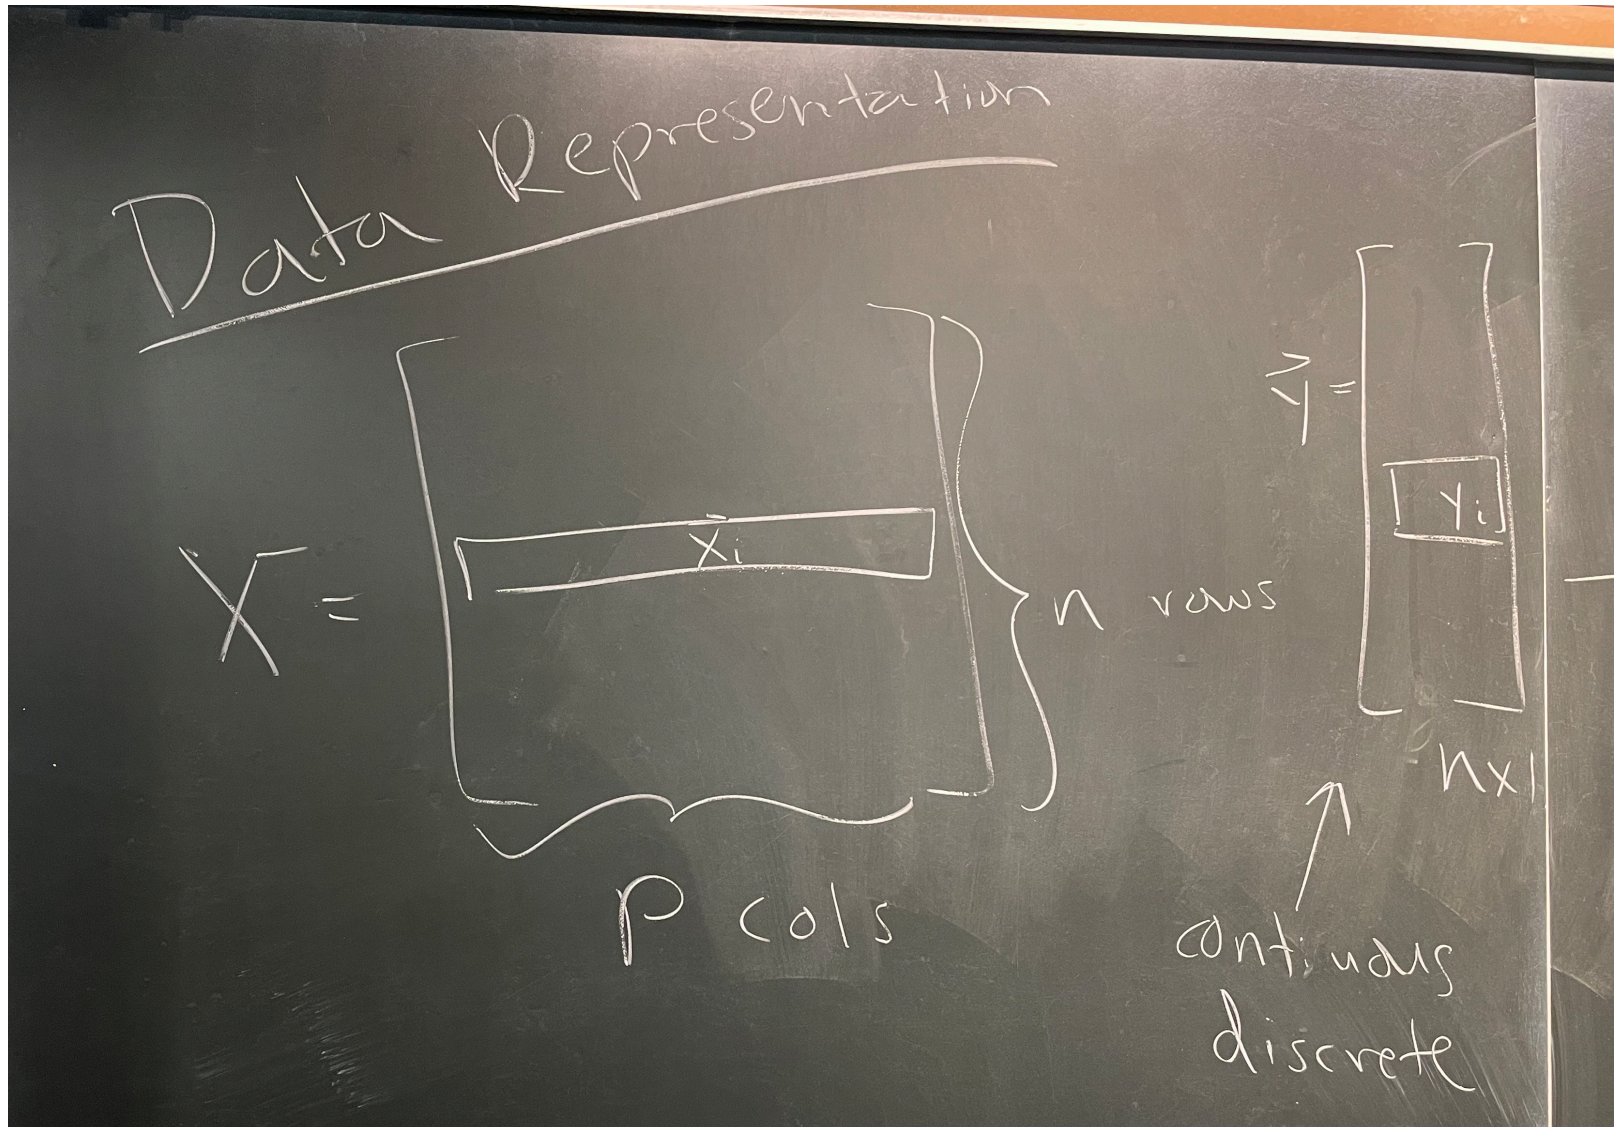 Data Representation
X =
x⃗i
n rows
p cols
y⃗ =
yi
nx1
continuous
discrete